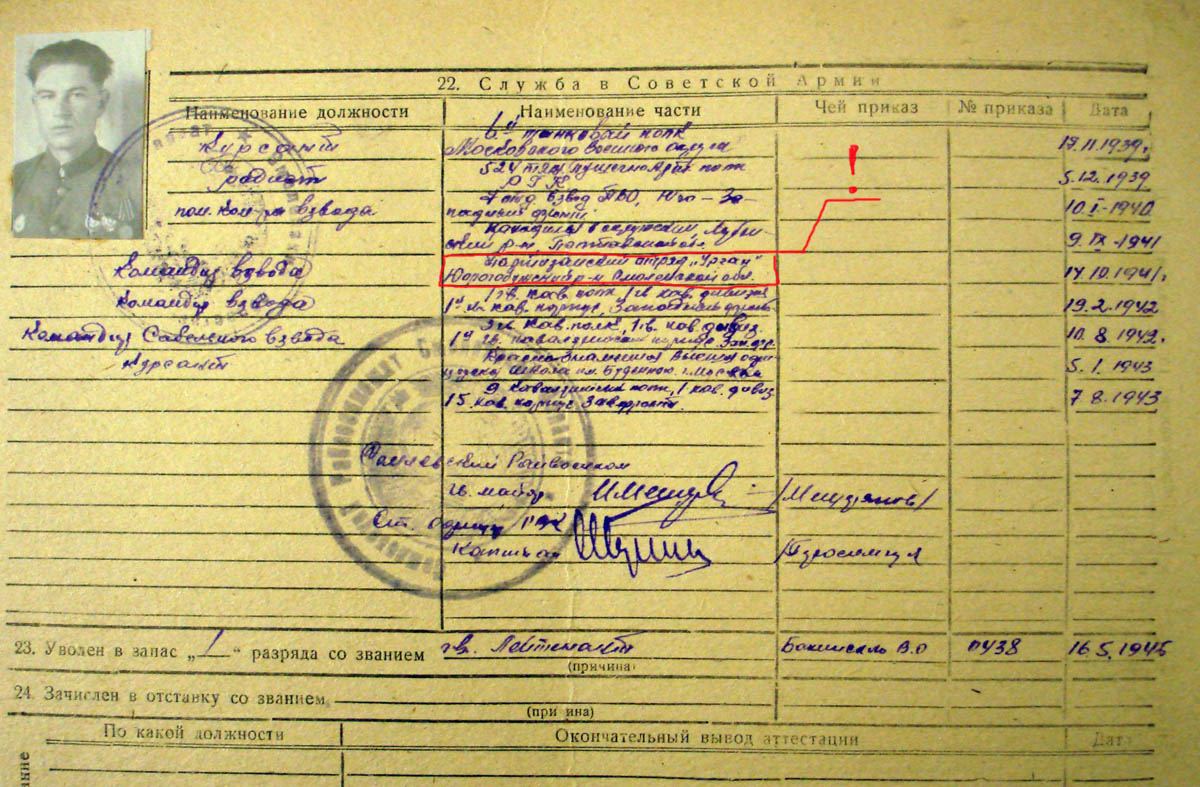 22. Служба в Советской Армии
Наименование должности Наименование части Чей приказ № приказа Дата
Курсант 6й танковый полк
Московского военного округа 19.11.1939г.
радист 524 тяж пушечно Арт. полк
Р Г К 5.12.1939
пом. ком-ра взвода взвод ПВО, Юго-За-
падный фронт 10.I-1940
Находился в окружении
ский р-н, Полтавской обл. 9.IX-1941
Командир взвода Партизанский отряд „Ураган"
Дорогобужский р-н Смоленской обл. 14.10.1941г.
Командир взвода 1 гв. кав. полк 1 гв кав. дивизия
1й гв. кав. корпус, Западный фронт 19.2.1942
Командир Сабельного взвода гв кав. полк, 1 гв. кав дивиз.
1й гв. кавалерийский корпус Зап. фр. 10.8.1942г.
Курсант Краснознаменная Высшая офи-
церская Школа им. Буденного г. Москва 5.1.1943
кавалерийский полк, 1 кав. дивиз
15 кав. корпус Закфронта. 7.8.1943
Райвоенком
гв. майор
Ст. офицер
Капитан
23. Уволен в запас „1" разряда со званием гв. Лейтенант Бакинского В.О 0438 16.5.1946
(причина)
24. Зачислен в отставку со званием
(при ина)
По какой должности Окончательный вывод аттестации Дата